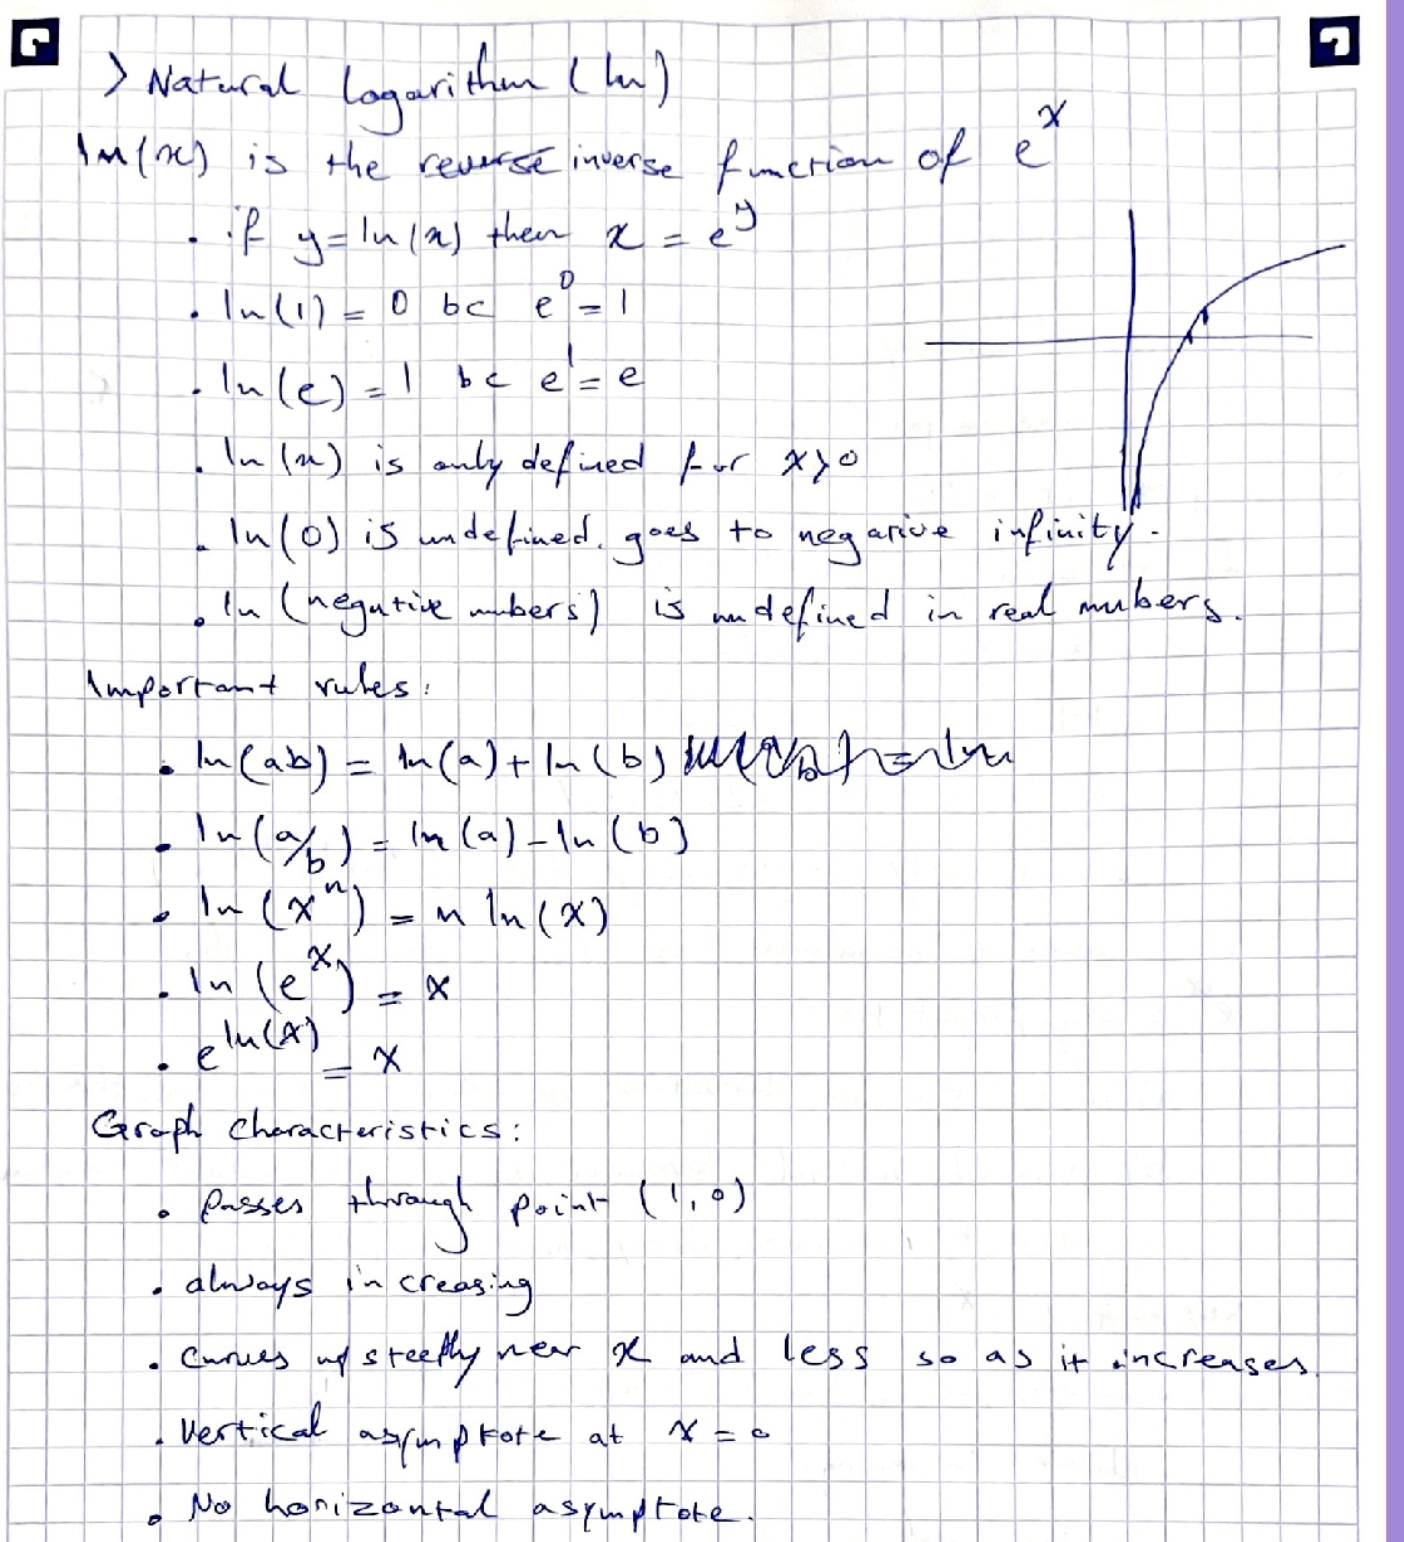 > Natural logarithm (ln)
ln(x) is the reverse inverse function of e^x
. if y=ln(x) then x = e^y
. ln(1) = 0 bc e^0 = 1
. ln(e) = 1 bc e^1 = e
. ln(x) is only defined for x>0
. ln(0) is undefined. goes to negative infinity.
. ln (negative numbers) is undefined in real numbers.
Important rules:
. ln(ab) = ln(a) + ln(b)
. ln(a/b) = ln(a) - ln(b)
. ln(x^n) = n ln(x)
. ln(e^x) = x
. e^ln(x) = x
Graph characteristics:
. Passes through point (1,0)
. always increasing
. curves up steeply near x and less so as it increases.
. Vertical asymptote at x = 0
. No horizontal asymptote.